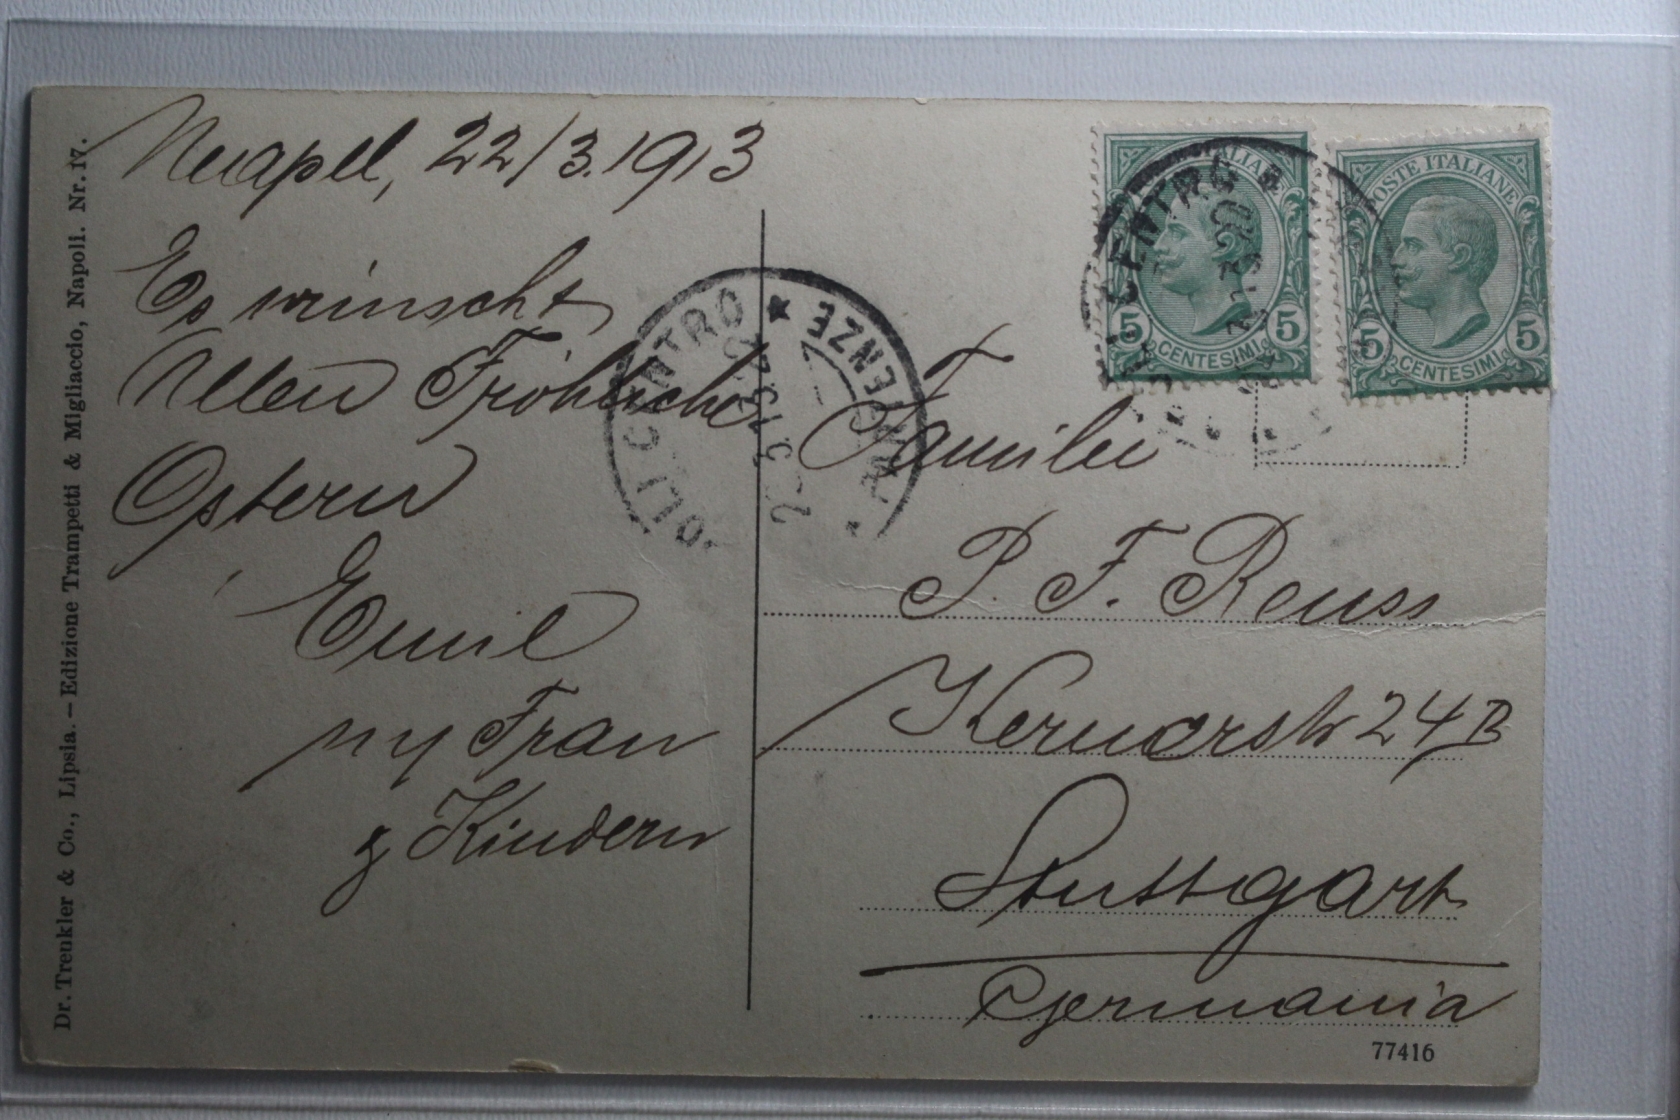 Dr. Trenkler & Co., Lipsia. – Edizione Trampetti & Migliaccio, Napoli. Nr. 17.
Neapel, 22/3.1913
Es wünscht
Allen Fröhliche
Ostern
Emil
Frau
Kindern
CENTRO
POSTE ITALIANE
5 CENTESIMI 5
POSTE ITALIANE
5 CENTESIMI 5
OLI CENTRO ★
Familie
P. F. Reuss
Kernerstr 24 B
Stuttgart
Germania
77416